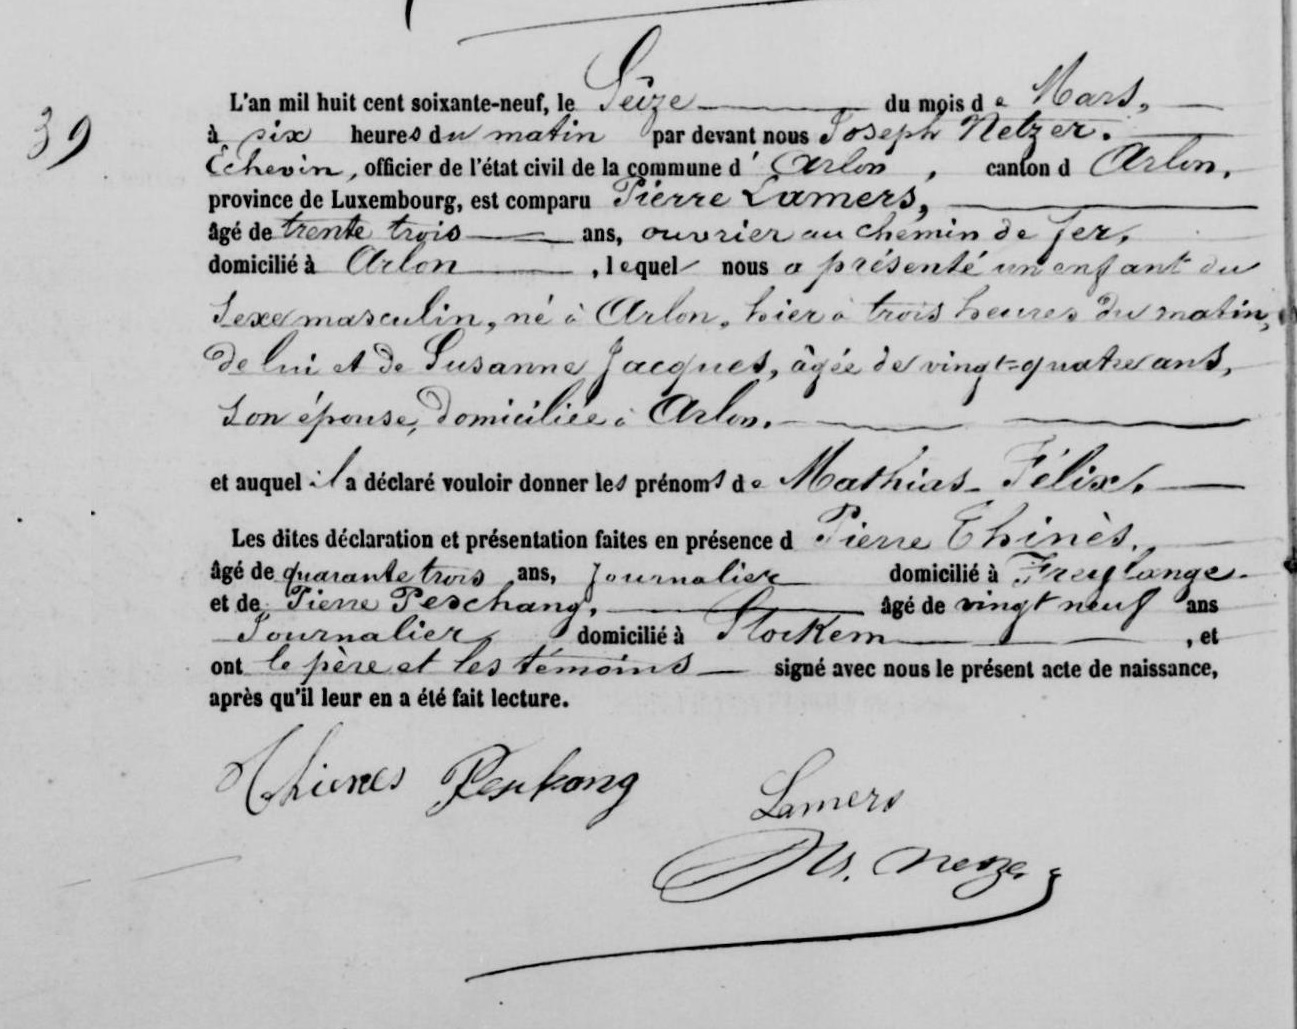 39
L'an mil huit cent soixante-neuf, le Seize du mois de Mars,
à six heures du matin par devant nous Joseph Netzer.
Echevin, officier de l'état civil de la commune d'Arlon, canton d Arlon,
province de Luxembourg, est comparu Pierre Lamers,
âgé de trente trois ans, ouvrier au chemin de fer,
domicilié à Arlon, lequel nous a présenté un enfant du
Sexe masculin, né à Arlon, hier à trois heures du matin,
de lui et de Susanne Jacques, âgée de vingt-quatre ans,
son épouse, domiciliée à Arlon.
et auquel il a déclaré vouloir donner les prénoms de Mathias Félix.
Les dites déclaration et présentation faites en présence d Pierre Thinès.
âgé de quarante trois ans, Journalier domicilié à Freylange
et de Pierre Peschang, âgé de vingt neuf ans
Journalier domicilié à Stockem, et
ont le père et les témoins signé avec nous le présent acte de naissance,
après qu'il leur en a été fait lecture.
Thienes Peschong Lamers
Netzer